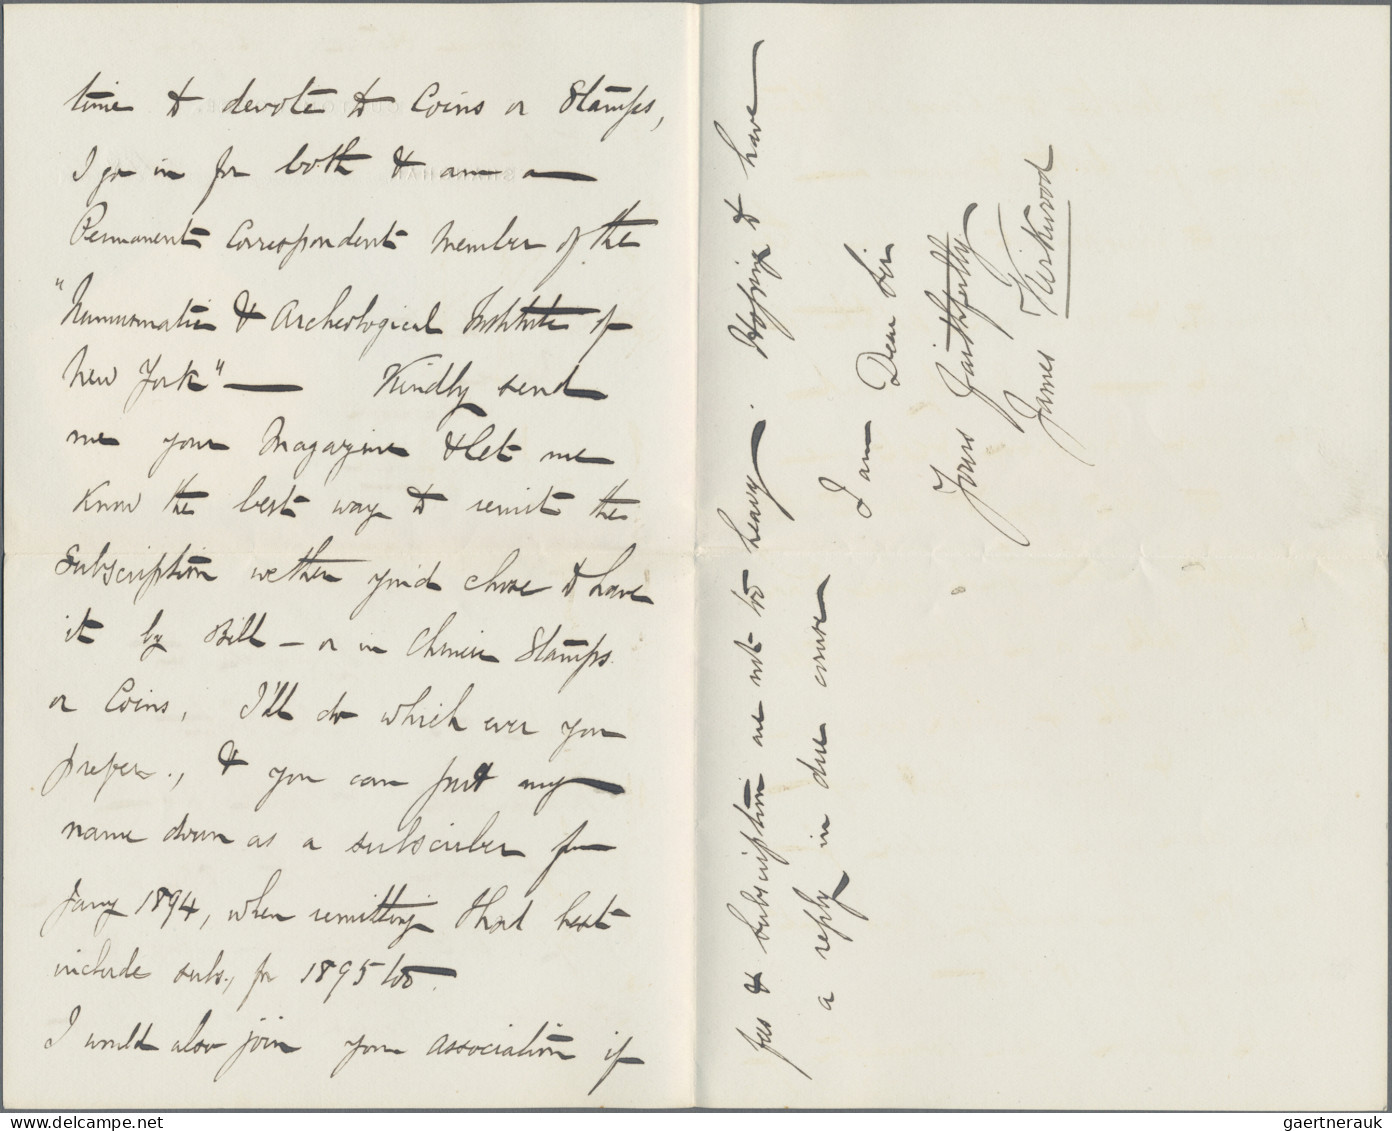 time & devote & Coins or Stamps,
I go in for both & am a
Permanent Correspondent Member of the
"Numismatic & Archeological Institute of
New York" — Kindly send
me your Magazine & let me
Know the best way to remit the
Subscription wether you'd chose to have
it by Bill – or in Chinese Stamps
or Coins, I'll do which ever you
prefer., & you can put my
name down as a subscriber from
Jany 1894, when remitting
include subs., for 1895 too.
I would also join your association if
fees & subscription are not too heavy. Hoping to have
a reply in due course
I am Dear Sir
Yours Faithfully
James Kirkwood
www.delcampe.net
gaertnerauk